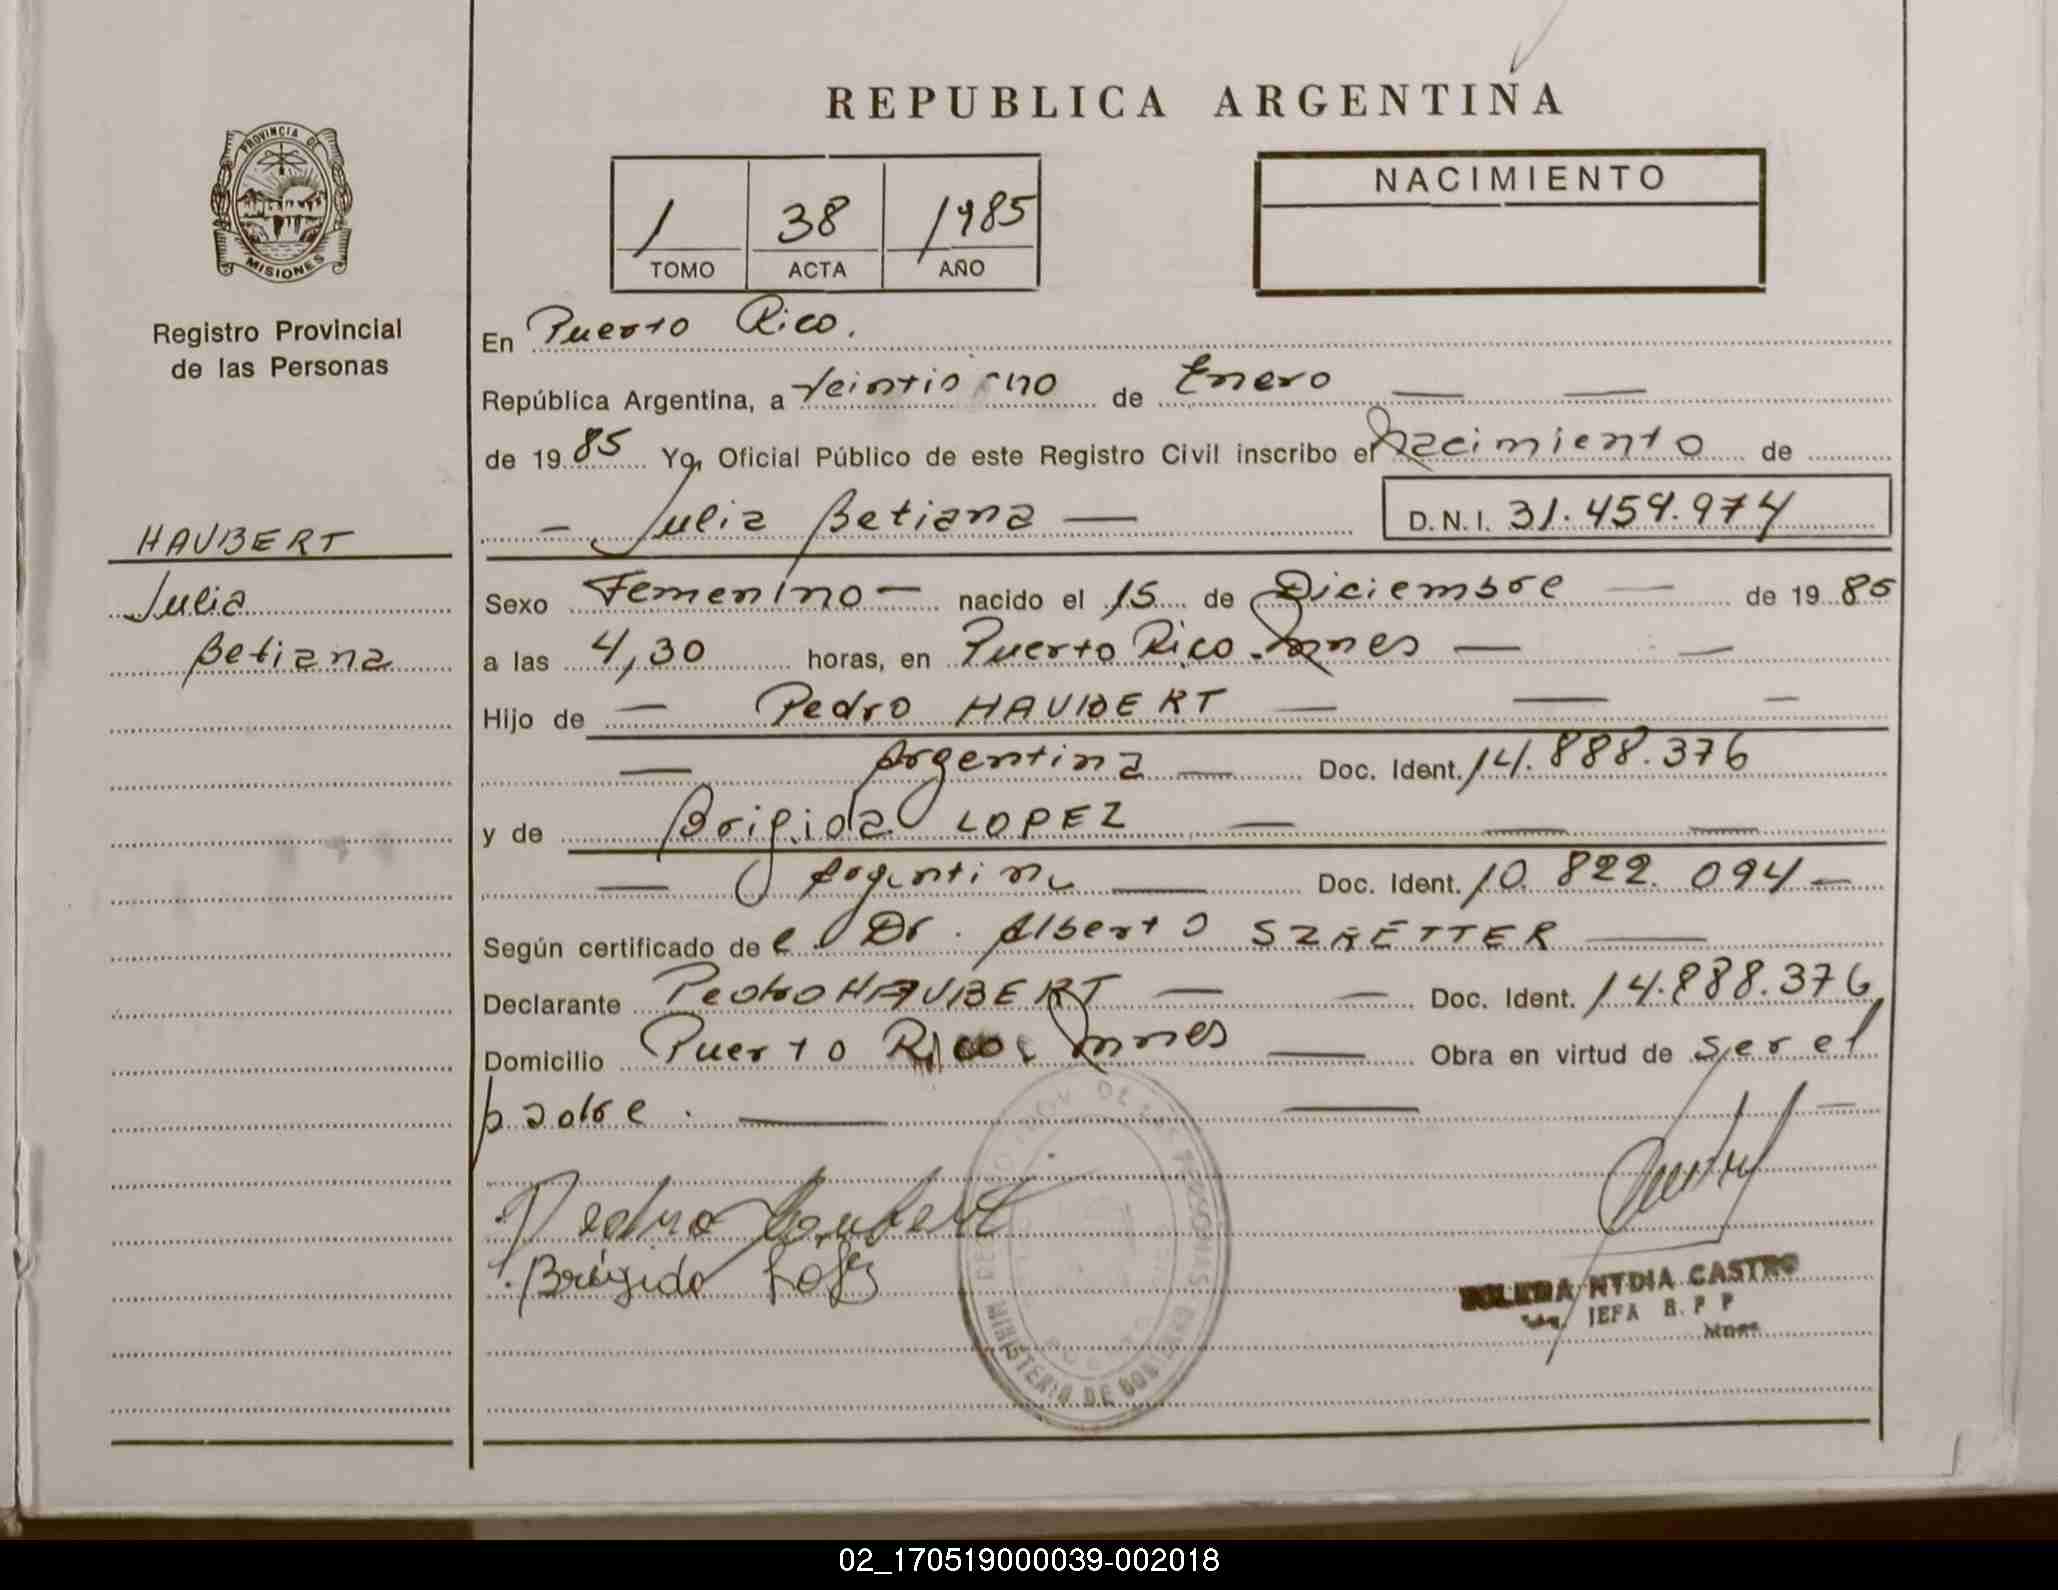 REPUBLICA ARGENTINA
PROVINCIA DE
MISIONES
Registro Provincial
de las Personas
1 38 1985
TOMO ACTA AÑO
NACIMIENTO
En Puerto Rico.
República Argentina, a de Enero
de 1985 Yo, Oficial Público de este Registro Civil inscribo el Nacimiento de
Julia Betiana D.N.I. 31.459.974
HAUBERT
Julia
Betiana
Sexo Femenino nacido el 15 de Diciembre de 1985
a las 4,30 horas, en Puerto Rico. Mnes
Hijo de Pedro HAUBERT
Argentina Doc. Ident. 14.888.376
y de Brigida LOPEZ
Argentina Doc. Ident. 10.822.094
Según certificado del Dr. Alberto
Declarante Pedro HAUBERT Doc. Ident. 14.888.376
Domicilio Puerto Rico. Mnes Obra en virtud de ser el
padre.
Pedro Haubert
Brígida
NYDIA CASTRO
JEFA R. P P
Mnes
MINISTERIO DE GOBIERNO
02_170519000039-002018